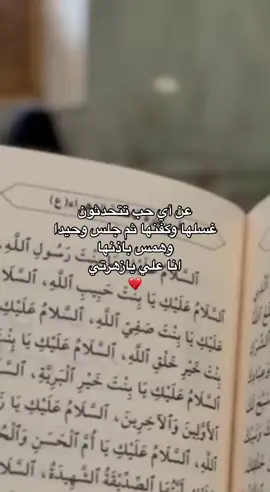 عن أي حب تتحدثون
غسلها وكفنها ثم جلس وحيدا
وهمس باذنها
انا علي يازهرتي
اء(ع)
السَّلَامُ عَلَيْكِ يَا بِنْتَ رَسُولِ اللهِ،
السَّلَامُ عَلَيْكِ يَا بِنْتَ حَبِيبِ اللهِ، السَّلَا
عَلَيْكِ يَا بِنْتَ صَفِيِّ اللهِ، السَّلَامُ عَلَ
بِنْتَ خَيْرِ خَلْقِ اللهِ، السَّلَامُ عَلَيْكِ يَا بِ
يَا بِنْتَ خَيْرِ الْبَرِيَّةِ، السَّلَامُ عَلَيْ
الْأَوَّلِينَ وَالْآخِرِينَ، السَّلَامُ عَلَيْكِ يَا زَ
اللهِ، السَّلَامُ عَلَيْكِ يَا أُمَّ الْحَسَنِ وَالْحُ
أَيَّتُهَا الصِّدِّيقَةُ الشَّهِيدَةُ، السَّلَا